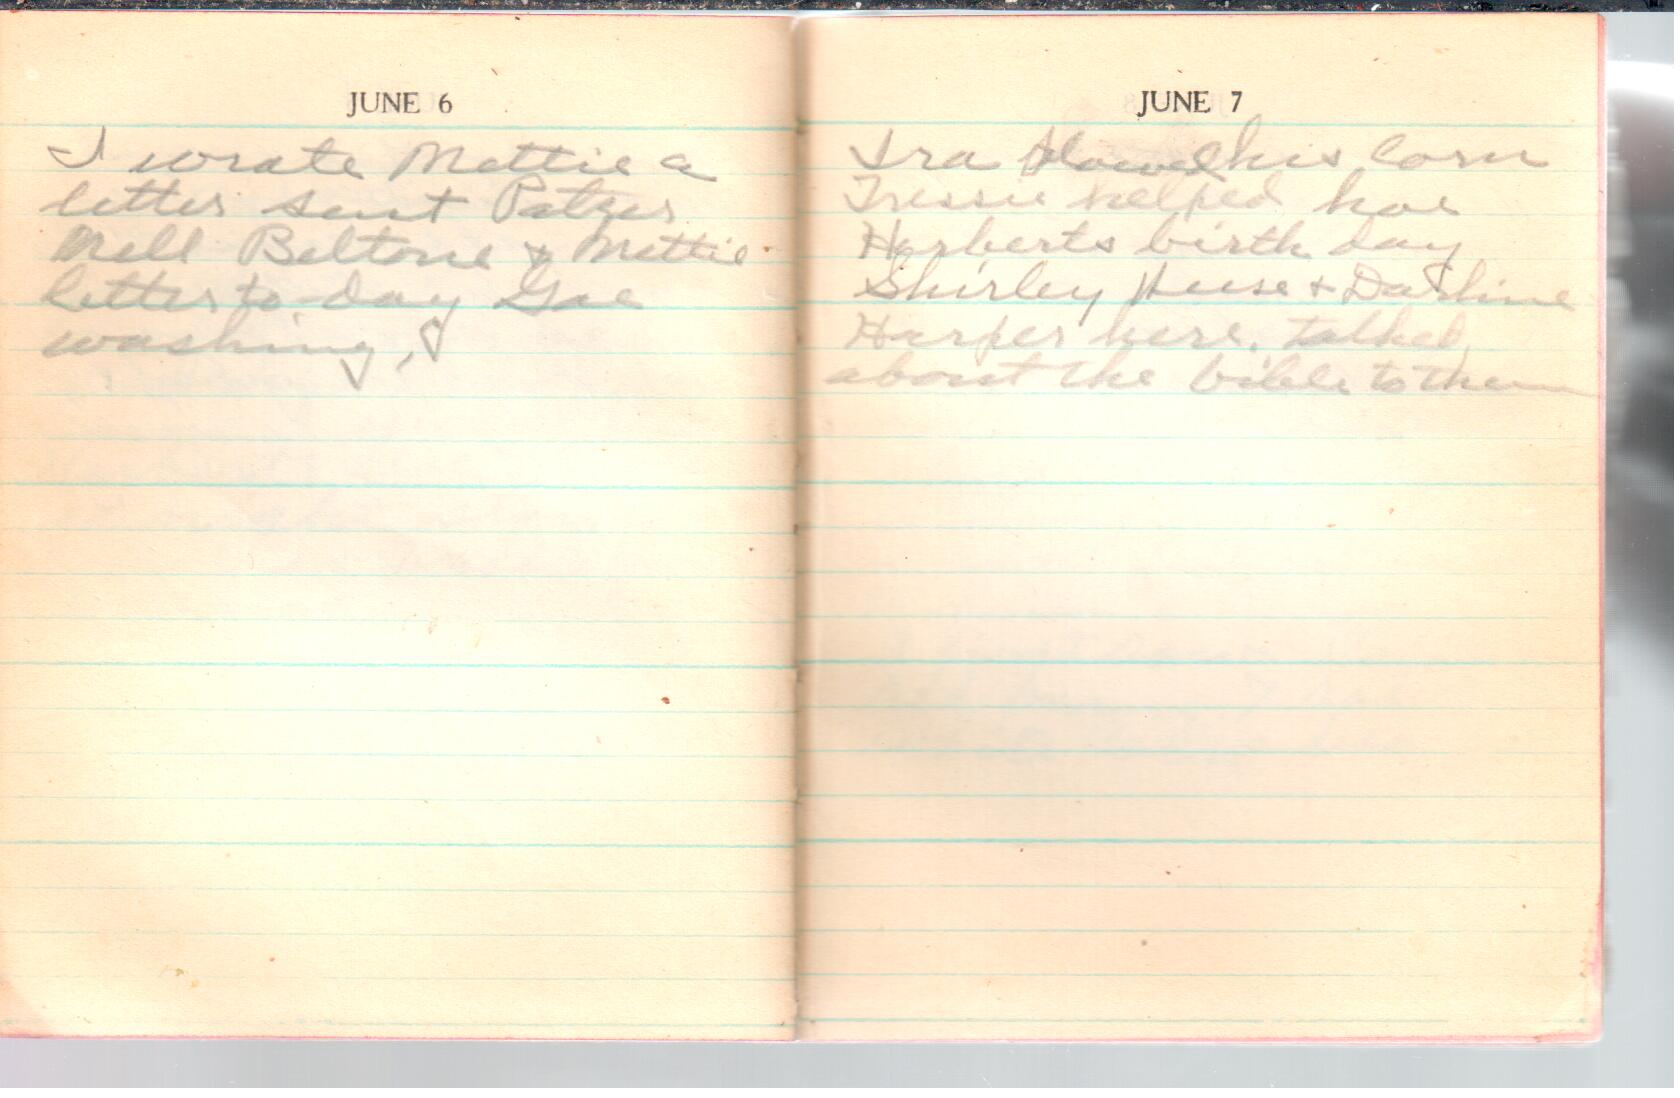 JUNE 6
I wrote Mettie a
letter sent Patzer
Mell Beltone & Mettie
letter to-day Gae
washing.
JUNE 7
Ira Plowed his corn
Tressie helped hoe
Herberts birth day
Shirley & Darline
Harper here. talked
about the bible to them